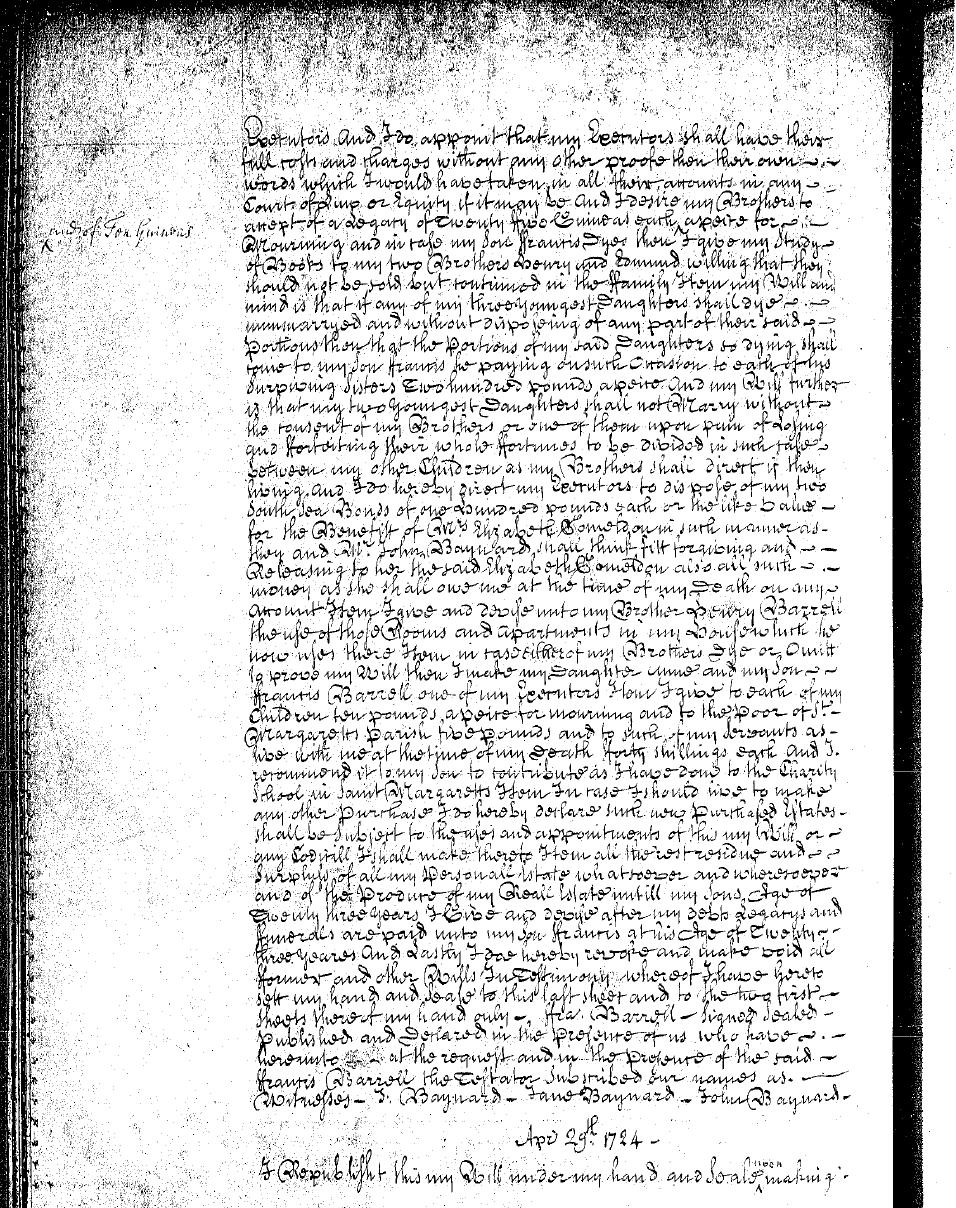 Executors And I do appoint that my Executors shall have their
full costs and charges without any other proofe then their own
words which I would have taken in all their accounts in any
Court of Law or Equity if it may be And I desire my Brothers to
accept of a Legacy of Twenty ffive Guineas each a peice for
and of Ten Guineas
Mourning and in case my Son ffrancis Dyes then I give my Study
of Books to my two Brothers Henry and Edmund willing that they
should not be sold but continued in the ffamily Item my Will and
mind is that if any of my three youngest Daughters shall dye
unmarryed and without disposeing of any part of their said
Portions then that the Portions of my said Daughters so dying shall
come to my Son ffrancis he paying on such Occasion to each of his
Surviving Sisters Two hundred pounds a peice And my Will further
is that my two youngest Daughters shall not Marry without
the consent of my Brothers or one of them upon pain of Losing
and fforfeiting their whole ffortunes to be divided in such case
between my other Children as my Brothers shall direct if then
living And I do hereby direct my Executors to dispose of my two
South Sea Bonds of one hundred pounds each or the like Value
for the Benefit of Mrs Elizabeth in such manner as
they and Mr John Baynard shall think fitt forgiving and
Releasing to her the said Elizabeth also all such
money as she shall owe me at the time of my Death on any
Account Item I give and devise unto my Brother Henry Barrell
the use of those Rooms and apartments in my House which he
now uses there Item in case either of my Brothers Dye or Omitt
to prove my Will then I make my Daughter Anne and my Son
ffrancis Barrell one of my Executors Item I give to each of my
Children ten pounds a peice for mourning and to the Poor of St
Margaretts Parish five pounds and to such of my servants as
live with me at the time of my Death fforty shillings each And I
recommend it to my Son to contribute as I have done to the Charity
School in Saint Margaretts Item In case I should live to make
any other Purchase I do hereby declare such new Purchased Estates
shall be Subject to the uses and appointments of this my Will or
any Codicill I shall make thereto Item all the rest residue and
Surplus of all my Personall Estate whatsoever and wheresoever
and of the Produce of my Reall Estate untill my Sons Age of
Twenty three years I Give and devise after my debts Legacys and
ffunerals are paid unto my Son ffrancis at his Age of Twenty
three yeares And Lastly I doe hereby revoke and make void all
former and other Wills In Testimony whereof I have hereto
sett my hand and Seale to this last sheet and to the two first
sheets thereof my hand only ffra. Barrell Signed Sealed
Published and Declared in the Presence of us who have
hereunto at the request and in the Presence of the said
ffrancis Barrell the Testator Subscribed our names as
Witnesses J. Baynard Jane Baynard John Baynard
Apr 29th 1724
I Republisht this my Will under my hand and Seale upon making